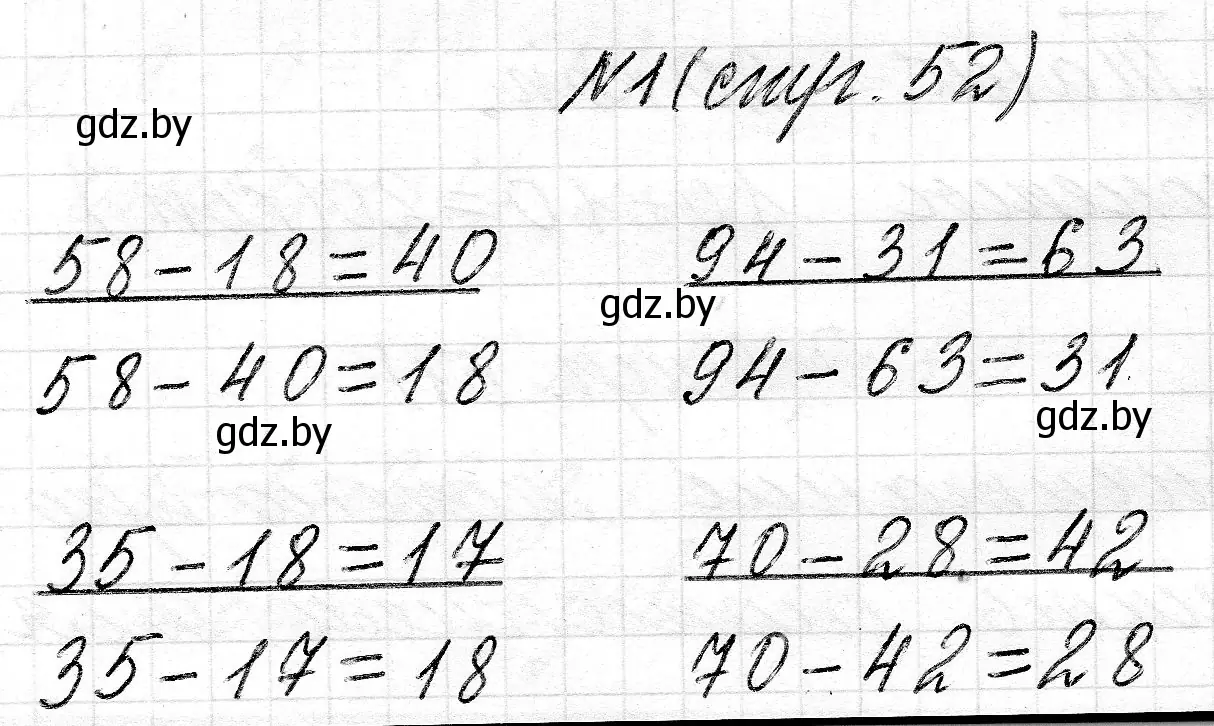 N1 (стр. 52)
gdz.by
58-18=40 94-31=63
gdz.by
58-40=18 94-63=31
gdz.by gdz.by
35-18=17 70-28=42
35-17=18 70-42=28